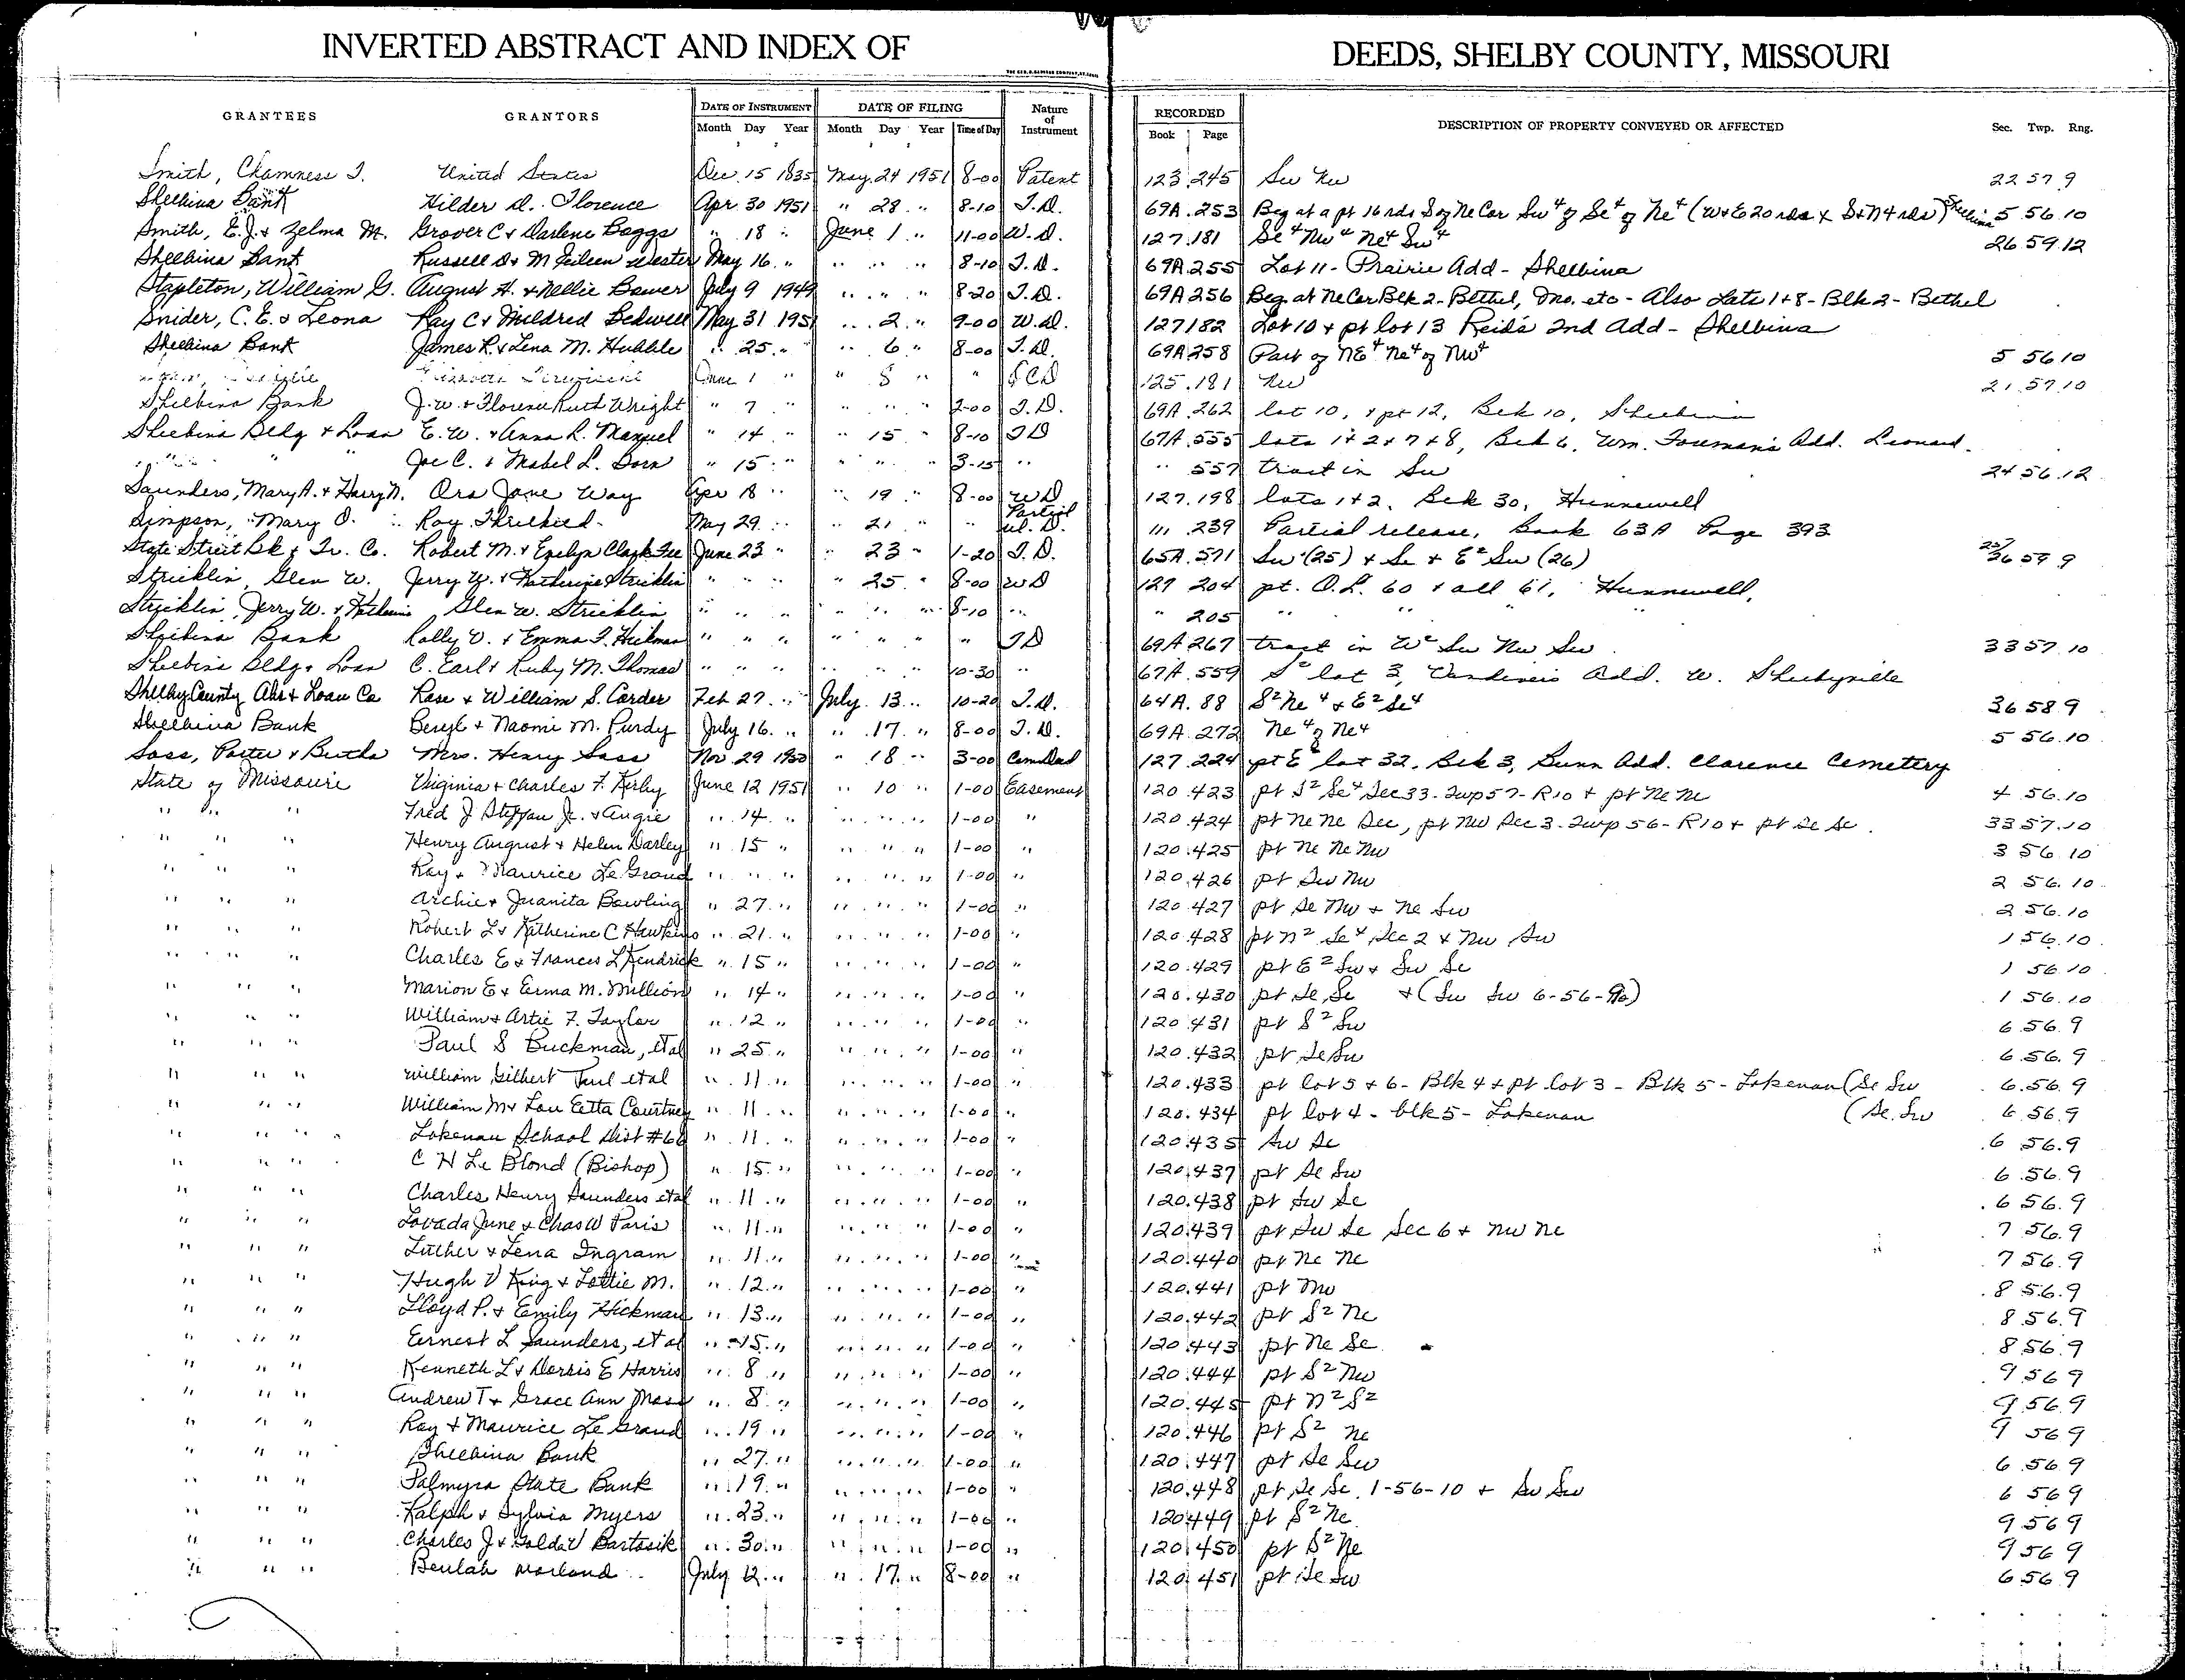 INVERTED ABSTRACT AND INDEX OF DEEDS, SHELBY COUNTY, MISSOURI
GRANTEES GRANTORS DATE OF INSTRUMENT DATE OF FILING Nature of Instrument RECORDED DESCRIPTION OF PROPERTY CONVEYED OR AFFECTED Sec. Twp. Rng.
Month Day Year Month Day Year Time of Day Book Page
Smith, Chamness I. United States Dec. 15 1835 May 24 1951 8-00 Patent 123 245 Sw Nw 22 57 9
Shelbina Bank Hilder D. Florence Apr. 30 1951 " 28 " 8-10 T.D. 69A 253 Beg at a pt 16 rds S of Ne Cor Sw4 of Se4 of Ne4 (W+E 20 rds x S+N 4 rds) Shelbina 5 56 10
Smith, E.J. + Zelma M. Grover C + Darlene Boggs " 18 " June 1 " 11-00 W.D. 127 181 Se4 Nw4 Ne4 Sw4 26 59 12
Shelbina Bank Russell D + M Eileen Wester May 16 " " " " 8-10 T.D. 69A 255 Lot 11 - Prairie Add - Shelbina
Stapleton, William G. August H. + Nellie Bower July 9 1949 " " " 8-20 T.D. 69A 256 Beg at Ne Cor Blk 2 - Bethel, Mo. etc - Also Lots 1+8 - Blk 2 - Bethel
Snider, C.E. + Leona Ray C + Mildred Bedwell May 31 1951 " 2 " 9-00 W.D. 127 182 Lot 10 + pt lot 13 Reid's 2nd Add - Shelbina
Shelbina Bank James R. + Lena M. Hubble " 25 " " 6 " 8-00 T.D. 69A 258 Part of NE4 Ne4 of Nw4 5 56 10
June 1 " " 8 " " 125 181 Nw 21 57 10
Shelbina Bank J.W. + Florence Ruth Wright " 7 " " " " 2-00 T.D. 69A 262 lot 10, + pt 12, Blk 10, Shelbina
Shelbina Bldg + Loan E.W. + Anna R. Manuel " 14 " " 15 " 8-10 TD 67A 555 lots 1+2+7+8, Blk 6, Wm. Foreman's Add. Leonard.
" " " Joe C. + Mabel L. Dorn " 15 " " " " 3-15 " " 557 tract in Sw 24 56 12
Saunders, Mary A. + Harry N. Ora Jane Way Apr 18 " " 19 " 8-00 WD 127 198 lots 1+2, Blk 30, Hunnewell
Simpson, Mary O. Roy Threlkeld May 29 " " 21 " " Partial 111 239 Partial release, Book 63A Page 393
State Street Bk + Tr. Co. Robert M. + Evelyn Clark Fee June 23 " " 23 " 1-20 T.D. 65A 571 Sw (25) + Se + E2 Sw (26) 25/26 59 9
Stricklin, Glen W. Jerry W. + Katherine Stricklin " " " " 25 " 8-00 WD 127 204 pt. O.L. 60 + all 61, Hunnewell,
Stricklin, Jerry W. + Katherine Glen W. Stricklin " " " " " " 8-10 " " 205 " " " "
Shelbina Bank Rolly V. + Emma F. Hickman " " " " " " " TD 69A 267 tract in W2 Sw Nw Sw 33 57 10
Shelbina Bldg + Loan C. Earl + Ruby M. Thomas " " " " " " 10-30 " 67A 559 S2 lot 3, Add. W. Shelbyville
Shelby County Abs + Loan Co Rose + William S. Carder Feb 27 " July 13 " 10-20 T.D. 64A 88 S2 Ne4 + E2 Se4 36 58 9
Shelbina Bank Beryl + Naomi M. Purdy July 16 " " 17 " 8-00 T.D. 69A 272 Ne4 of Ne4 5 56 10
Sass, Porter + Burtha Mrs. Henry Sass Nov. 29 1950 " 18 " 3-00 Cem Deed 127 224 pt E2 lot 32, Blk 3, Bunn Add. Clarence Cemetery
State of Missouri Virginia + Charles F. Kirby June 12 1951 " 10 " 1-00 Easement 120 423 pt S2 Se4 Sec 33 - Twp 57 - R10 + pt Ne Ne 4 56 10
" " " Fred J Steffan Jr. + Angie " 14 " " " " 1-00 " 120 424 pt Ne Ne Sec, pt Nw Sec 3 - Twp 56 - R10 + pt Se Se 33 57 10
" " " Henry August + Helen Darley " 15 " " " " 1-00 " 120 425 pt Ne Ne Nw 3 56 10
" " " Ray + Maurice Le Grand " " " " " " 1-00 " 120 426 pt Sw Nw 2 56 10
" " " Archie + Juanita Bowling " 27 " " " " 1-00 " 120 427 pt Se Nw + Ne Sw 2 56 10
" " " Robert L + Katherine C Hawkins " 21 " " " " 1-00 " 120 428 pt N2 Se4 Sec 2 + Nw Sw 1 56 10
" " " Charles E + Frances L Kendrick " 15 " " " " 1-00 " 120 429 pt E2 Sw + Sw Se 1 56 10
" " " Marion E + Erma M. Million " 14 " " " " 1-00 " 120 430 pt Se Se + (Sw Sw 6-56-9) 1 56 10
" " " William + Artie F. Taylor " 12 " " " " 1-00 " 120 431 pt S2 Sw 6 56 9
" " " Paul S Buckman, etal " 25 " " " " 1-00 " 120 432 pt Se Sw 6 56 9
" " " William Gilbert Turl etal " 11 " " " " 1-00 " 120 433 pt lot 5 + 6 - Blk 4 + pt lot 3 - Blk 5 - Lakenan (Se Sw 6 56 9
" " " William M + Lou Etta Courtney " 11 " " " " 1-00 " 120 434 pt lot 4 - blk 5 - Lakenan (Se Sw 6 56 9
" " " Lakenan School Dist # " 11 " " " " 1-00 " 120 435 Sw Se 6 56 9
" " " C H Le Blond (Bishop) " 15 " " " " 1-00 " 120 437 pt Se Sw 6 56 9
" " " Charles Henry Saunders etal " 11 " " " " 1-00 " 120 438 pt Sw Se 6 56 9
" " " Lovada June + Chas W Paris " 11 " " " " 1-00 " 120 439 pt Sw Se Sec 6 + Nw Ne 7 56 9
" " " Luther + Lena Ingram " 11 " " " " 1-00 " 120 440 pt Ne Ne 7 56 9
" " " Hugh V King + Lottie M. " 12 " " " " 1-00 " 120 441 pt Nw 8 56 9
" " " Lloyd P. + Emily Hickman " 13 " " " " 1-00 " 120 442 pt S2 Ne 8 56 9
" " " Ernest L Saunders, et al " 15 " " " " 1-00 " 120 443 pt Ne Se 8 56 9
" " " Kenneth L + Dorris E Harris " 8 " " " " 1-00 " 120 444 pt S2 Nw 9 56 9
" " " Andrew T + Grace Ann Mass " 8 " " " " 1-00 " 120 445 pt N2 S2 9 56 9
" " " Ray + Maurice Le Grand " 19 " " " " 1-00 " 120 446 pt S2 Ne 9 56 9
" " " Shelbina Bank " 27 " " " " 1-00 " 120 447 pt Se Sw 6 56 9
" " " Palmyra State Bank " 19 " " " " 1-00 " 120 448 pt Se Se 1-56-10 + Sw Sw 6 56 9
" " " Ralph + Sylvia Myers " 23 " " " " 1-00 " 120 449 pt S2 Ne 9 56 9
" " " Charles J + Golda V Bartasik " 30 " " " " 1-00 " 120 450 pt S2 Ne 9 56 9
" " " Beulah Worland July 12 " " 17 " 8-00 " 120 451 pt Se Sw 6 56 9